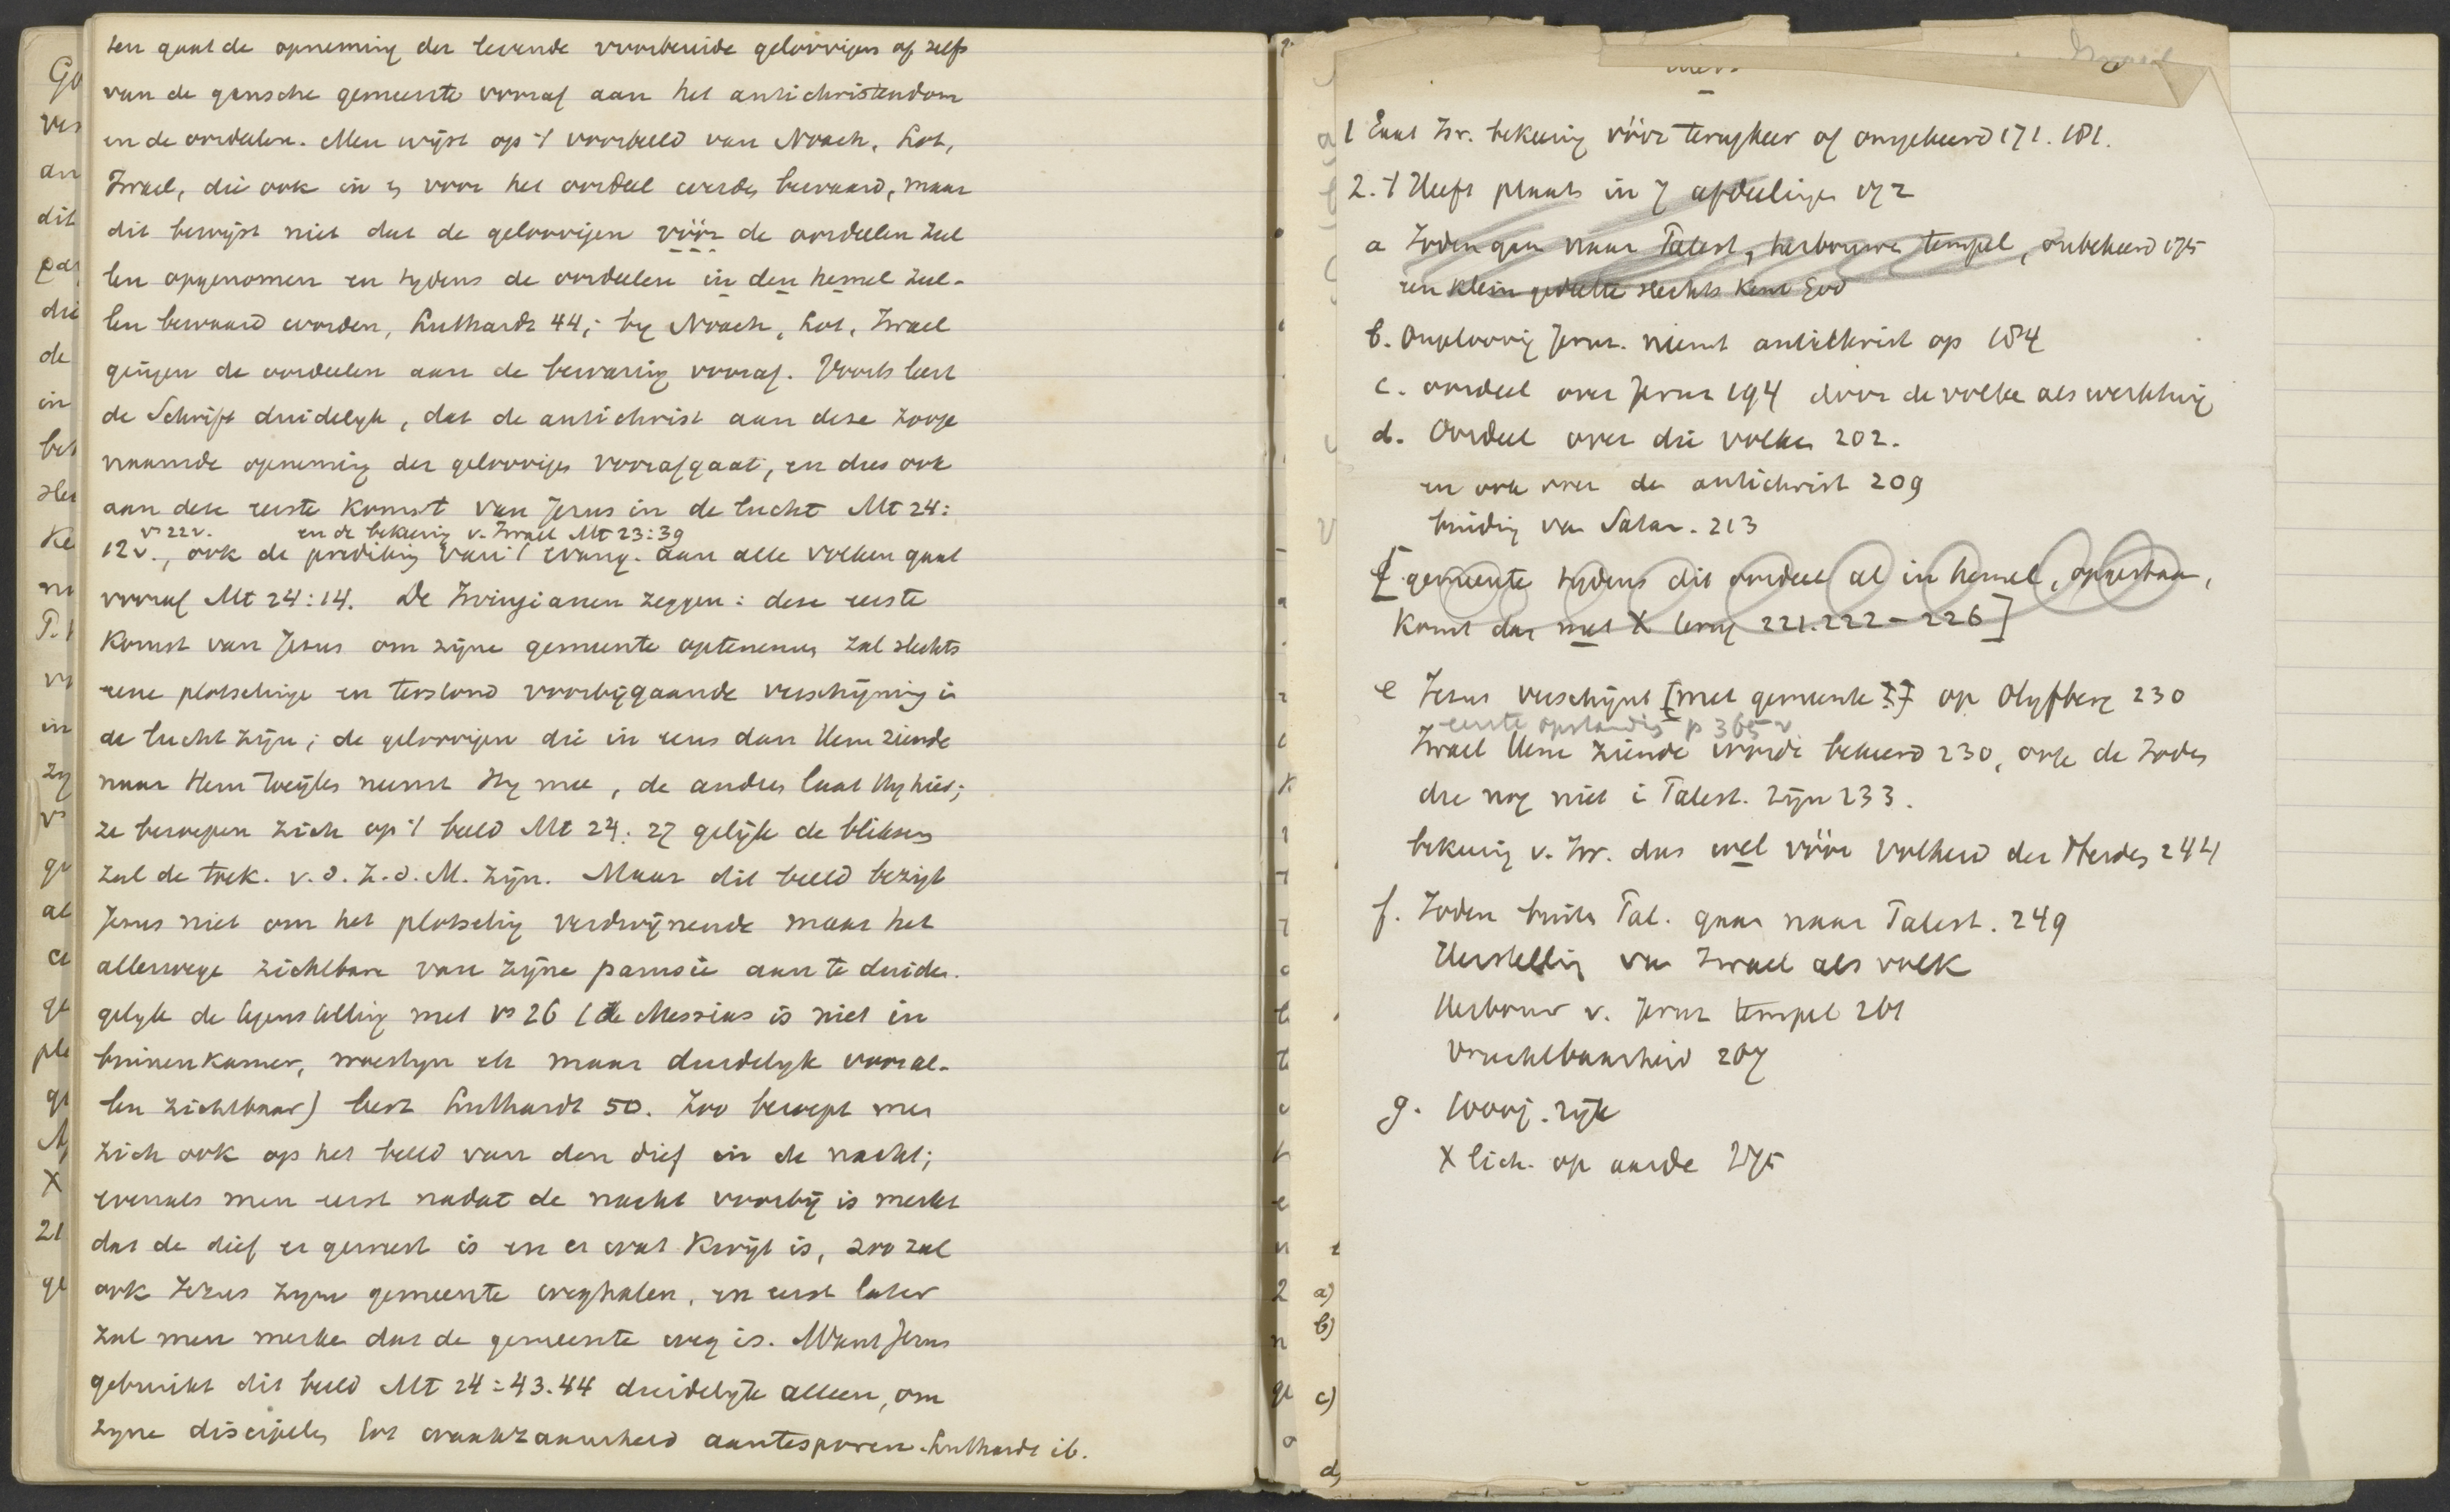 ten gaat de opneming der levende voorbereide geloovigen of zelfs
van de gansche gemeente vooraf aan het antichristendom
en de oordeelen. Men wijst op 't voorbeeld van Noach, Lot,
Israel, die ook in en voor het oordeel werden bewaard, maar
dit bewijst niet dat de geloovigen vóór de oordeelen zul
len opgenomen en tydens de oordeelen in den hemel zul-
len bewaard worden, Luthardt 44; by Noach, Lot, Israel
gingen de oordeelen aan de bewaring vooraf. Voorts leert
de Schrift duidelyk, dat de antichrist aan deze zooge
naamde opneming der geloovigen voorafgaat, en dus ook
aan deze eerste komst van Jesus in de lucht Mt 24:
vs 22v. en de bekeering v. Israel Mt 23:39
12v., ook de prediking van 't evang. aan alle volken gaat
vooraf Mt 24:14. De Irvingianen zeggen: deze eerste
komst van Jesus om zijne gemeente optenemen zal slechts
eene plotselinge en terstond voorbijgaande verschijning in
de lucht zijn; de geloovigen die in eens dan Hem ziende
naar Hem toeijlen neemt Hy mee, de andren laat Hy hier;
ze beroepen zich op 't beeld Mt 24:27 gelijk de bliksem
zal de toek. v.d. Z.d.M. zijn. Maar dit beeld bezigt
Jesus niet om het plotseling verdwijnende maar het
allerwege zichtbare van zijne parousie aan te duiden.
gelyk de tegenstelling met vs 26 (de Messias is niet in
binnenkamer, woestyn etc maar duidelyk voor al-
len zichtbaar) leert Luthardt 50. Zoo beroept men
zich ook op het beeld van den dief in de nacht;
evenals men eerst nadat de nacht voorbij is merkt
dat de dief er geweest is en er wat kwijt is, zoo zal
ook Jezus zyne gemeente weghalen, en eerst later
zal men merken dat de gemeente weg is. Want Jesus
gebruikt dit beeld Mt 24:43.44 duidelyk alleen, om
zyne discipelen tot waakzaamheid aantesporen. Luthardt ib.
1 Gaat Isr. bekeering vóór terugkeer of omgekeerd 171. 181.
2. 't Heeft plaats in 7 afdeelingen 172
a Joden gaan naar Palest, herbouwen tempel, onbekeerd 175
een klein gedeelte slechts kent God
b. Ongeloovig Jeruz. neemt antichrist op 184
c. oordeel over Jeruz 194 door de volken als werktuig
d. Oordeel over die volken 202.
en ook over den antichrist 209
binding van Satan. 213
[gemeente tydens dit oordeel al in hemel, opgestaan,
komt dan met X terug 221.222-226]
e Jesus verschijnt [met gemeente ?] op Olyfberg 230
eerste opstanding p 365v
Israel Hem ziende wordt bekeerd 230, ook de Joden
die nog niet i Palest. zijn 233.
bekeering v. Isr. dus wel vóór volheid der Heidenen 244
f. Joden buiten Pal. gaan naar Palest. 249
Herstelling van Israel als volk
Herbouw v. Jeruz tempel 261
Vruchtbaarheid 267
g. 1000j. rijk
X lich. op aarde 275
a)
b)
c)
d)